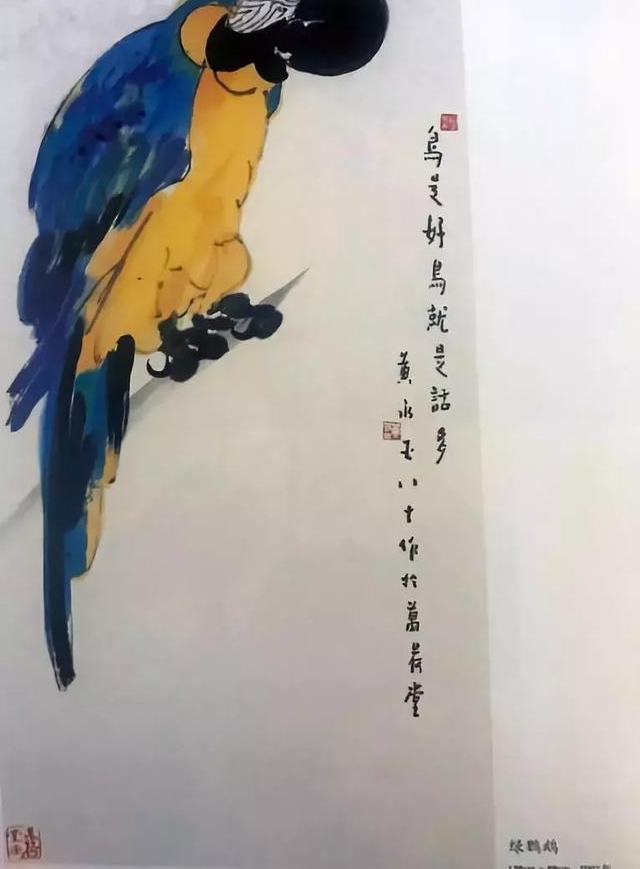 鸟是好鸟就是話多
黄永玉八十作於萬荷堂
绿鹦鹉